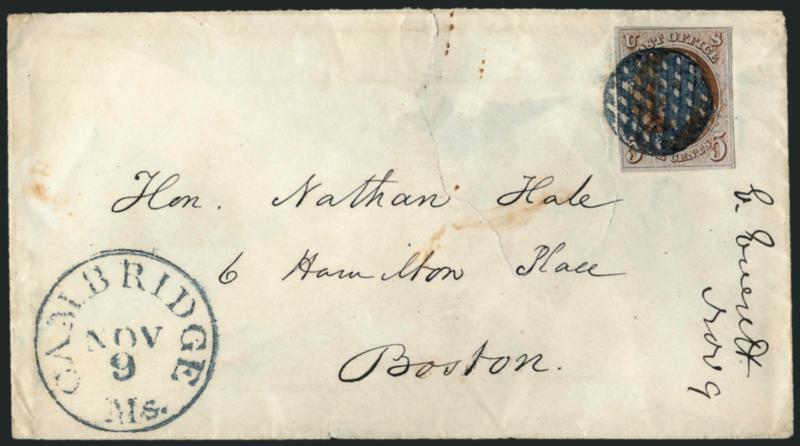 U S
POST OFFICE
5 CENTS 5
Hon. Nathan Hale
6 Hamilton Place
Boston.
CAMBRIDGE
NOV
9
Ms.
E. Everett
Nov 9